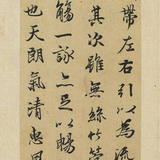 帶左右引以為流
其次雖無絲竹管
觴一詠亦足以暢
也天朗氣清惠風